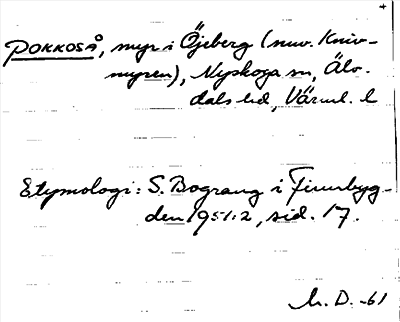 POKKOSÅ, myr i Öjeberg (nuv. Kniv-
myren), Nyskoga sn, Älv-
dals hd, Värml. l
Etymologi: S. Bograng i Finnbyg-
den 1951:2, sid. 17.
M. D. -61